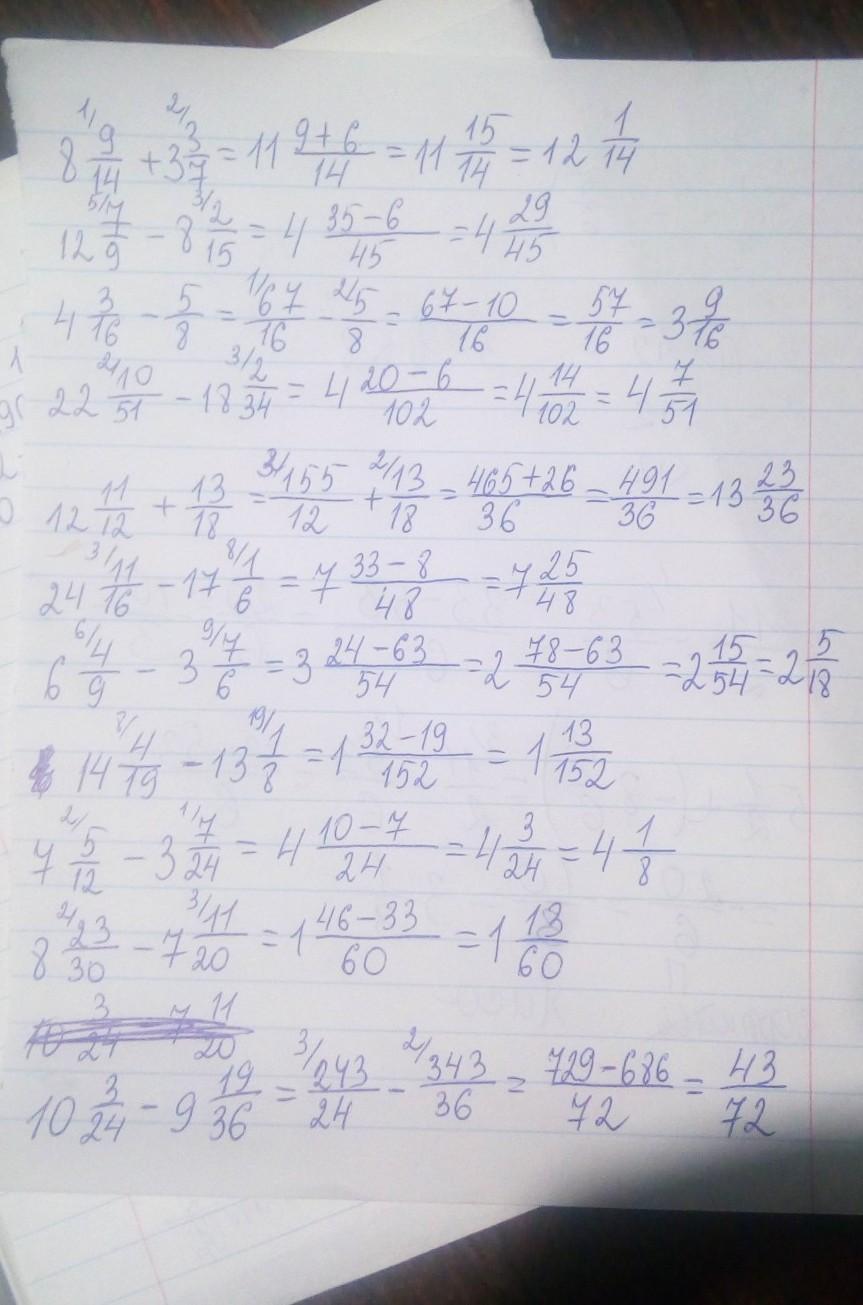 8 1/ 9/14 + 3 2/ 3/7 = 11 (9+6)/14 = 11 15/14 = 12 1/14
12 5/ 7/9 − 8 3/ 2/15 = 4 (35−6)/45 = 4 29/45
4 3/16 − 5/8 = 1/ 67/16 − 2/ 5/8 = (67−10)/16 = 57/16 = 3 9/16
22 2/ 10/51 − 18 3/ 2/34 = 4 (20−6)/102 = 4 14/102 = 4 7/51
12 11/12 + 13/18 = 3/ 155/12 + 2/ 13/18 = (465+26)/36 = 491/36 = 13 23/36
24 3/ 11/16 − 17 8/ 1/6 = 7 (33−8)/48 = 7 25/48
6 6/ 4/9 − 3 9/ 7/6 = 3 (24−63)/54 = 2 (78−63)/54 = 2 15/54 = 2 5/18
14 8/ 4/19 − 13 19/ 1/8 = 1 (32−19)/152 = 1 13/152
7 2/ 5/12 − 3 1/ 7/24 = 4 (10−7)/24 = 4 3/24 = 4 1/8
8 2/ 23/30 − 7 3/ 11/20 = 1 (46−33)/60 = 1 13/60
10 3/24 7 11/20
10 3/24 − 9 19/36 = 3/ 243/24 − 2/ 343/36 = (729−686)/72 = 43/72